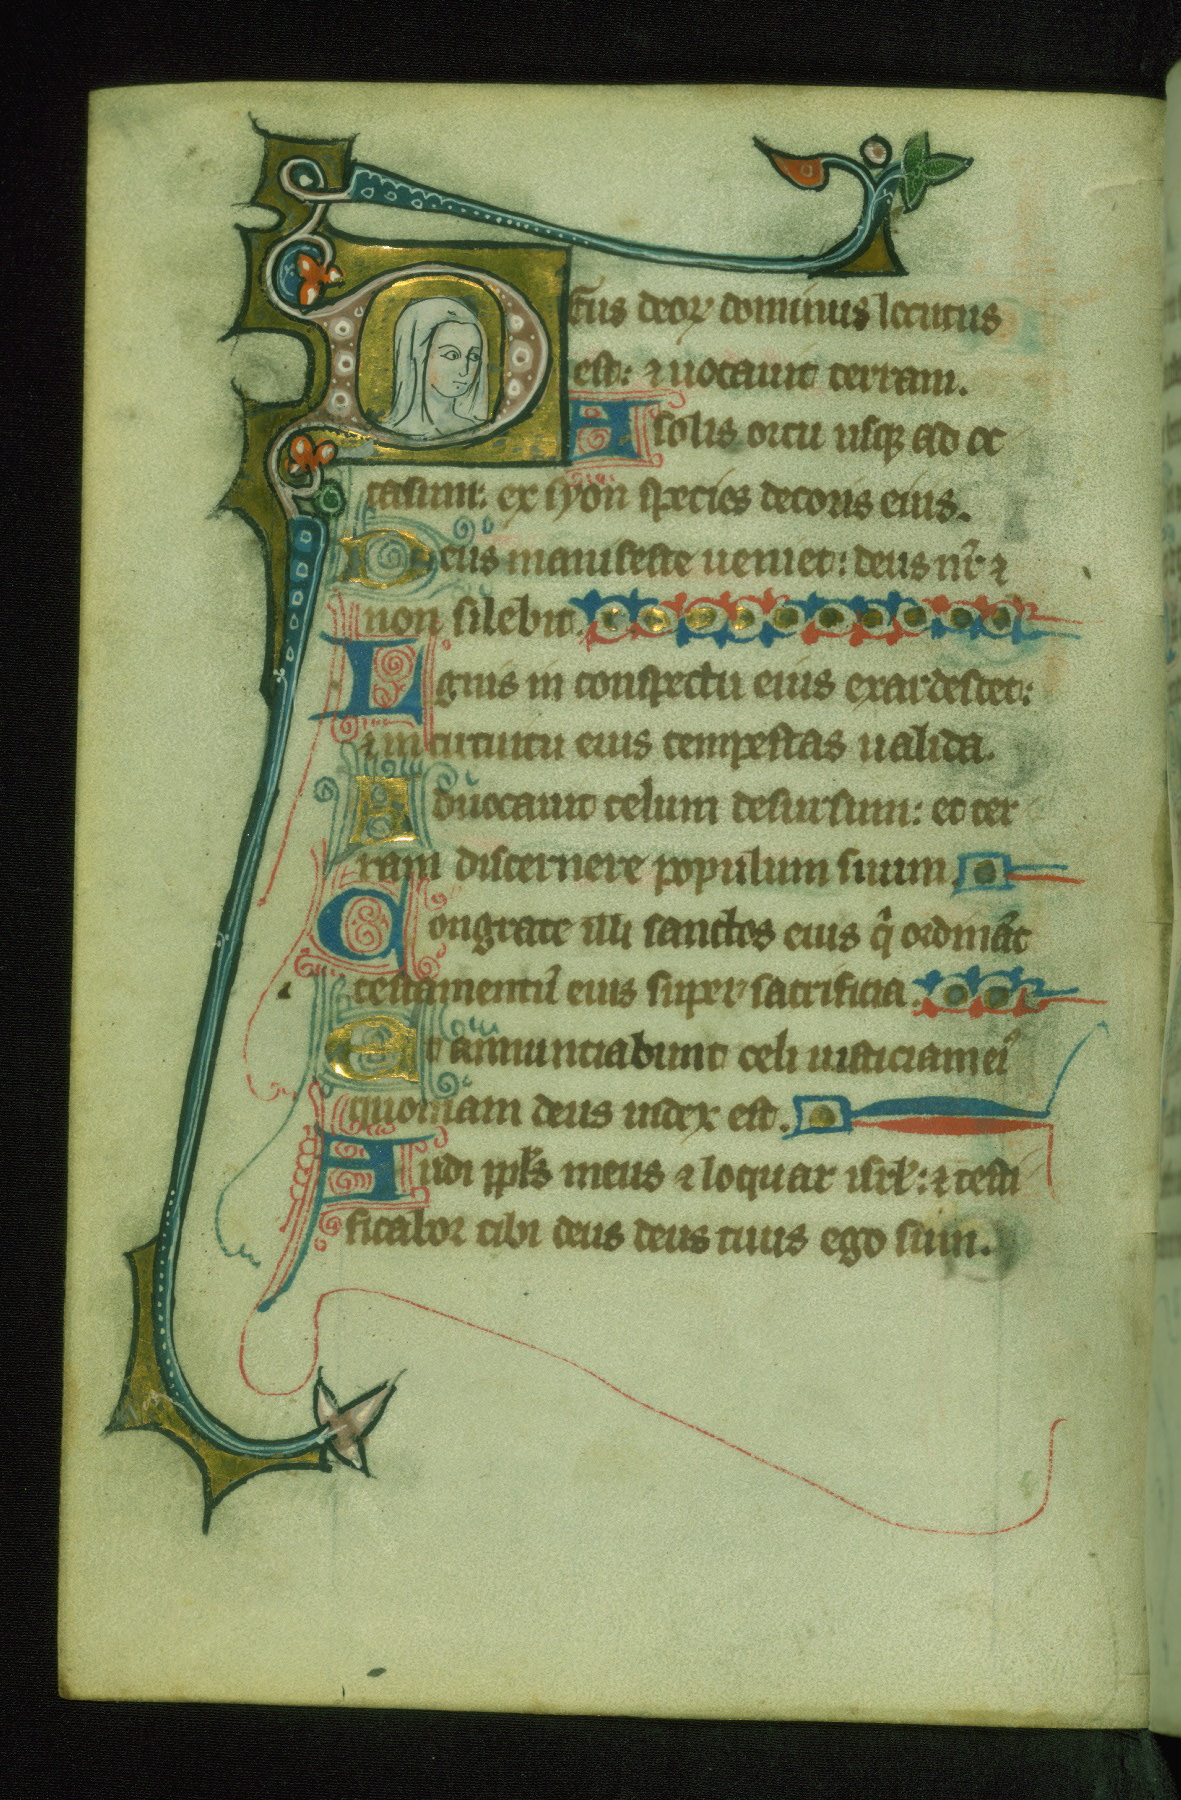 D eus deoꝝ dominus locutus
est: ⁊ uocauit terram.
A solis ortu usqꝫ ad oc
casum: ex syon species decoris eius.
Deus manifeste ueniet: deus nr̄ ⁊
non silebit.
Ignis in conspectu eius exardescet:
⁊ in circuitu eius tempestas ualida.
Aduocauit celum desursum: et ter
ram discernere populum suum.
Congrate illi sanctos eius q̄ ordināt
testamentū eius super sacrificia.
Et annunciabunt celi iusticiam ei
quoniam deus iudex est.
Audi ppl̄s meus ⁊ loquar isrl̄: ⁊ testi
ficabor tibi deus deus tuus ego sum.